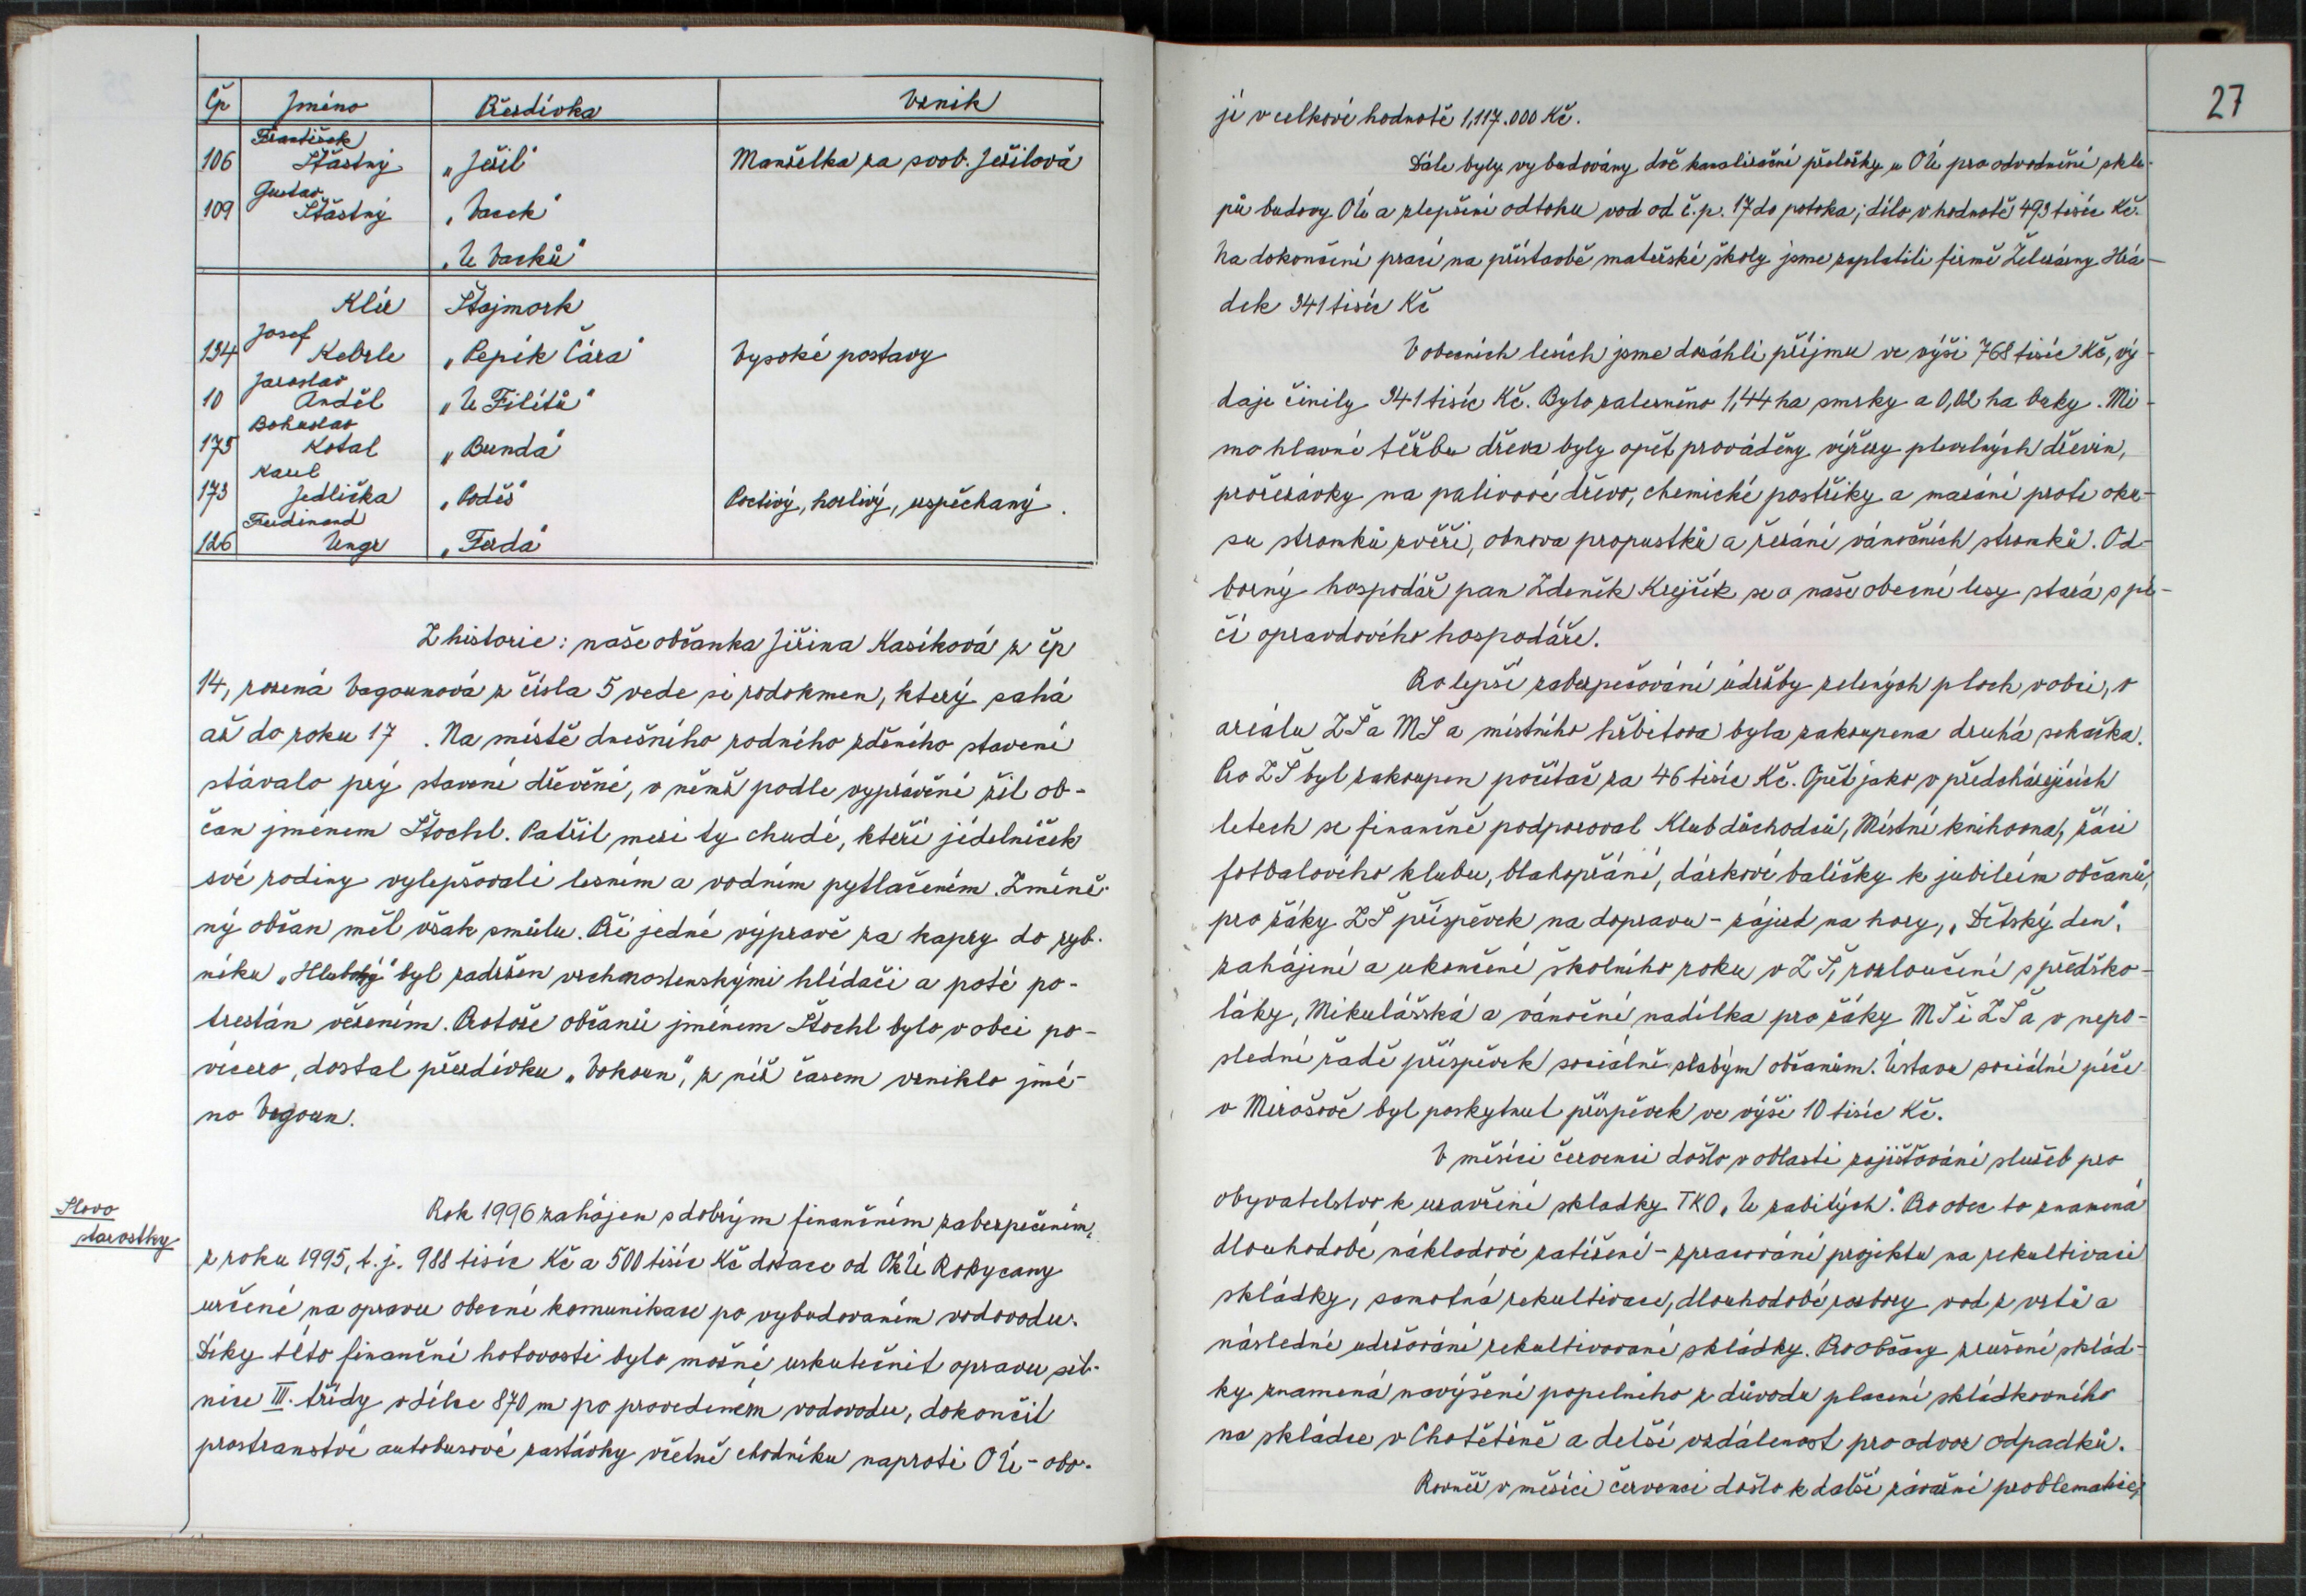 Čp Jméno Přezdívka Vznik
František
106 Šťastný „Ježil“ Manželka za svob. Ježilová
Gustav
109 Šťastný „Vacek“
„U Vacků“
Klír Štajmark
Josef
134 Kebrle „Pepík Čára“ Vysoké postavy
Jaroslav
10 Anděl „U Filítů“
Bohuslav
175 Kotal „Bunda“
Karel
173 Jedlička „Poděs“ Poctivý, horlivý, uspěchaný.
Ferdinand
126 Ungr „Ferda“
Z historie: naše občanka Jiřina Kasíková z čp
14, rozená Vagounová z čísla 5 vede si rodokmen, který sahá
až do roku 17 . Na místě dnešního rodného zděného stavení
stávalo prý stavení dřevěné, v němž podle vyprávění žil ob-
čan jménem Štochl. Patřil mezi ty chudé, kteří jídelníček
své rodiny vylepšovali lesním a vodním pytlačením. Zmíně-
ný občan měl však smůlu. Při jedné výpravě za kapry do ryb-
níku „Hluboký“ byl zadržen vrchnostenskými hlídači a poté po-
trestán vězením. Protože občanů jménem Štochl bylo v obci po-
vícero, dostal přezdívku „Vokoun“, z níž časem vzniklo jmé-
no Vagoun.
Slovo
starostky
Rok 1996 zahájen s dobrým finančním zabezpečením,
z roku 1995, t. j. 988 tisíc Kč a 500 tisíc Kč dotace od OkÚ Rokycany
určené na opravu obecní komunikace po vybudovaném vodovodu.
Díky této finanční hotovosti bylo možné uskutečnit opravu sil-
nice III. třídy v délce 870 m po provedeném vodovodu, dokončit
prostranství autobusové zastávky včetně chodníku naproti OÚ - obo-
27
jí v celkové hodnotě 1,117.000 Kč.
Dále byly vybudovány dvě kanalizační přeložky u OÚ pro odvodnění skle-
pů budovy OÚ a zlepšení odtoku vod od č.p. 17 do potoka; dílo v hodnotě 493 tisíc Kč.
Na dokončení prací na přístavbě mateřské školy jsme zaplatili firmě Železárny Hrá-
dek 341 tisíc Kč
V obecních lesích jsme dosáhli příjmu ve výši 768 tisíc Kč, vý-
daje činily 341 tisíc Kč. Bylo zalesněno 1,44 ha smrky a 0,02 ha buky. Mi-
mo hlavní těžbu dřeva byly opět prováděny výřezy plevelných dřevin,
prořezávky na palivové dřevo, chemické postřiky a mazání proti oku-
su stromků zvěří, obnova propustků a řezání vánočních stromků. Od-
borný hospodář pan Zdeněk Krejčík se o naše obecní lesy stará s pé-
čí opravdového hospodáře.
Pro lepší zabezpečování údržby zelených ploch v obci, v
areálu ZŠ a MŠ a místního hřbitova byla zakoupena druhá sekačka.
Pro ZŠ byl zakoupen počítač za 46 tisíc Kč. Opět jako v předcházejících
letech se finančně podporoval Klub důchodců, Místní knihovna, žáci
fotbalového klubu, blahopřání, dárkové balíčky k jubileím občanů,
pro žáky ZŠ příspěvek na dopravu - zájezd na hory, „Dětský den“,
zahájení a ukončení školního roku v ZŠ, rozloučení s předško-
láky, Mikulášská a vánoční nadílka pro žáky MŠ i ZŠ a v nepo-
slední řadě příspěvek sociálně slabým občanům. Ústavu sociální péče
v Mirošově byl poskytnut příspěvek ve výši 10 tisíc Kč.
V měsíci červenci došlo v oblasti zajišťování služeb pro
obyvatelstvo k uzavření skladky TKO „U zabitých“. Pro obec to znamená
dlouhodobé nákladové zatížení - zpracování projektu na rekultivaci
skládky, samotná rekultivace, dlouhodobé rozbory vod z vrtů a
následné udržování rekultivované skládky. Pro občany zrušení sklád-
ky znamená navýšení popelného z důvodu placení skládkovného
na skládce v Chotětíně a delší vzdálenost pro odvoz odpadků.
Rovněž v měsíci červenci došlo k další závažné problematice,